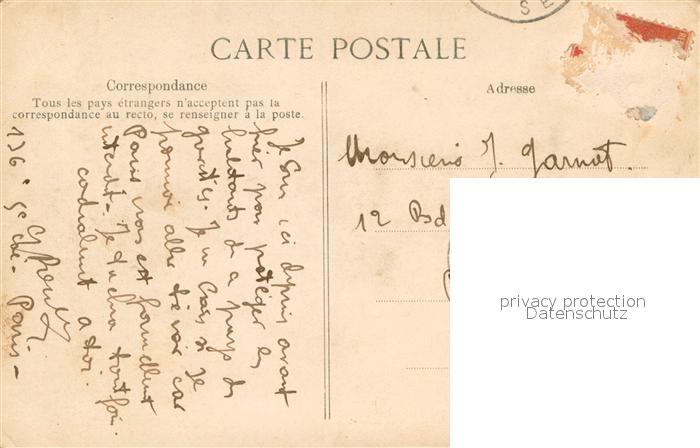 SE
CARTE POSTALE
Correspondance
Tous les pays étrangers n'acceptent pas la
correspondance au recto, se renseigner à la poste.
Adresse
Monsieur J. Garnot.
12 Bd
Je suis ici depuis avant
hier pour protéger les
habitants de ce pays de
grévistes. Je ne crois si je
pourrai aller te voir car
Paris nous est formellement
interdit. Je tâcherai toutefois.
cordialement a toi.
136e 5e cie - Paris -
privacy protection
Datenschutz